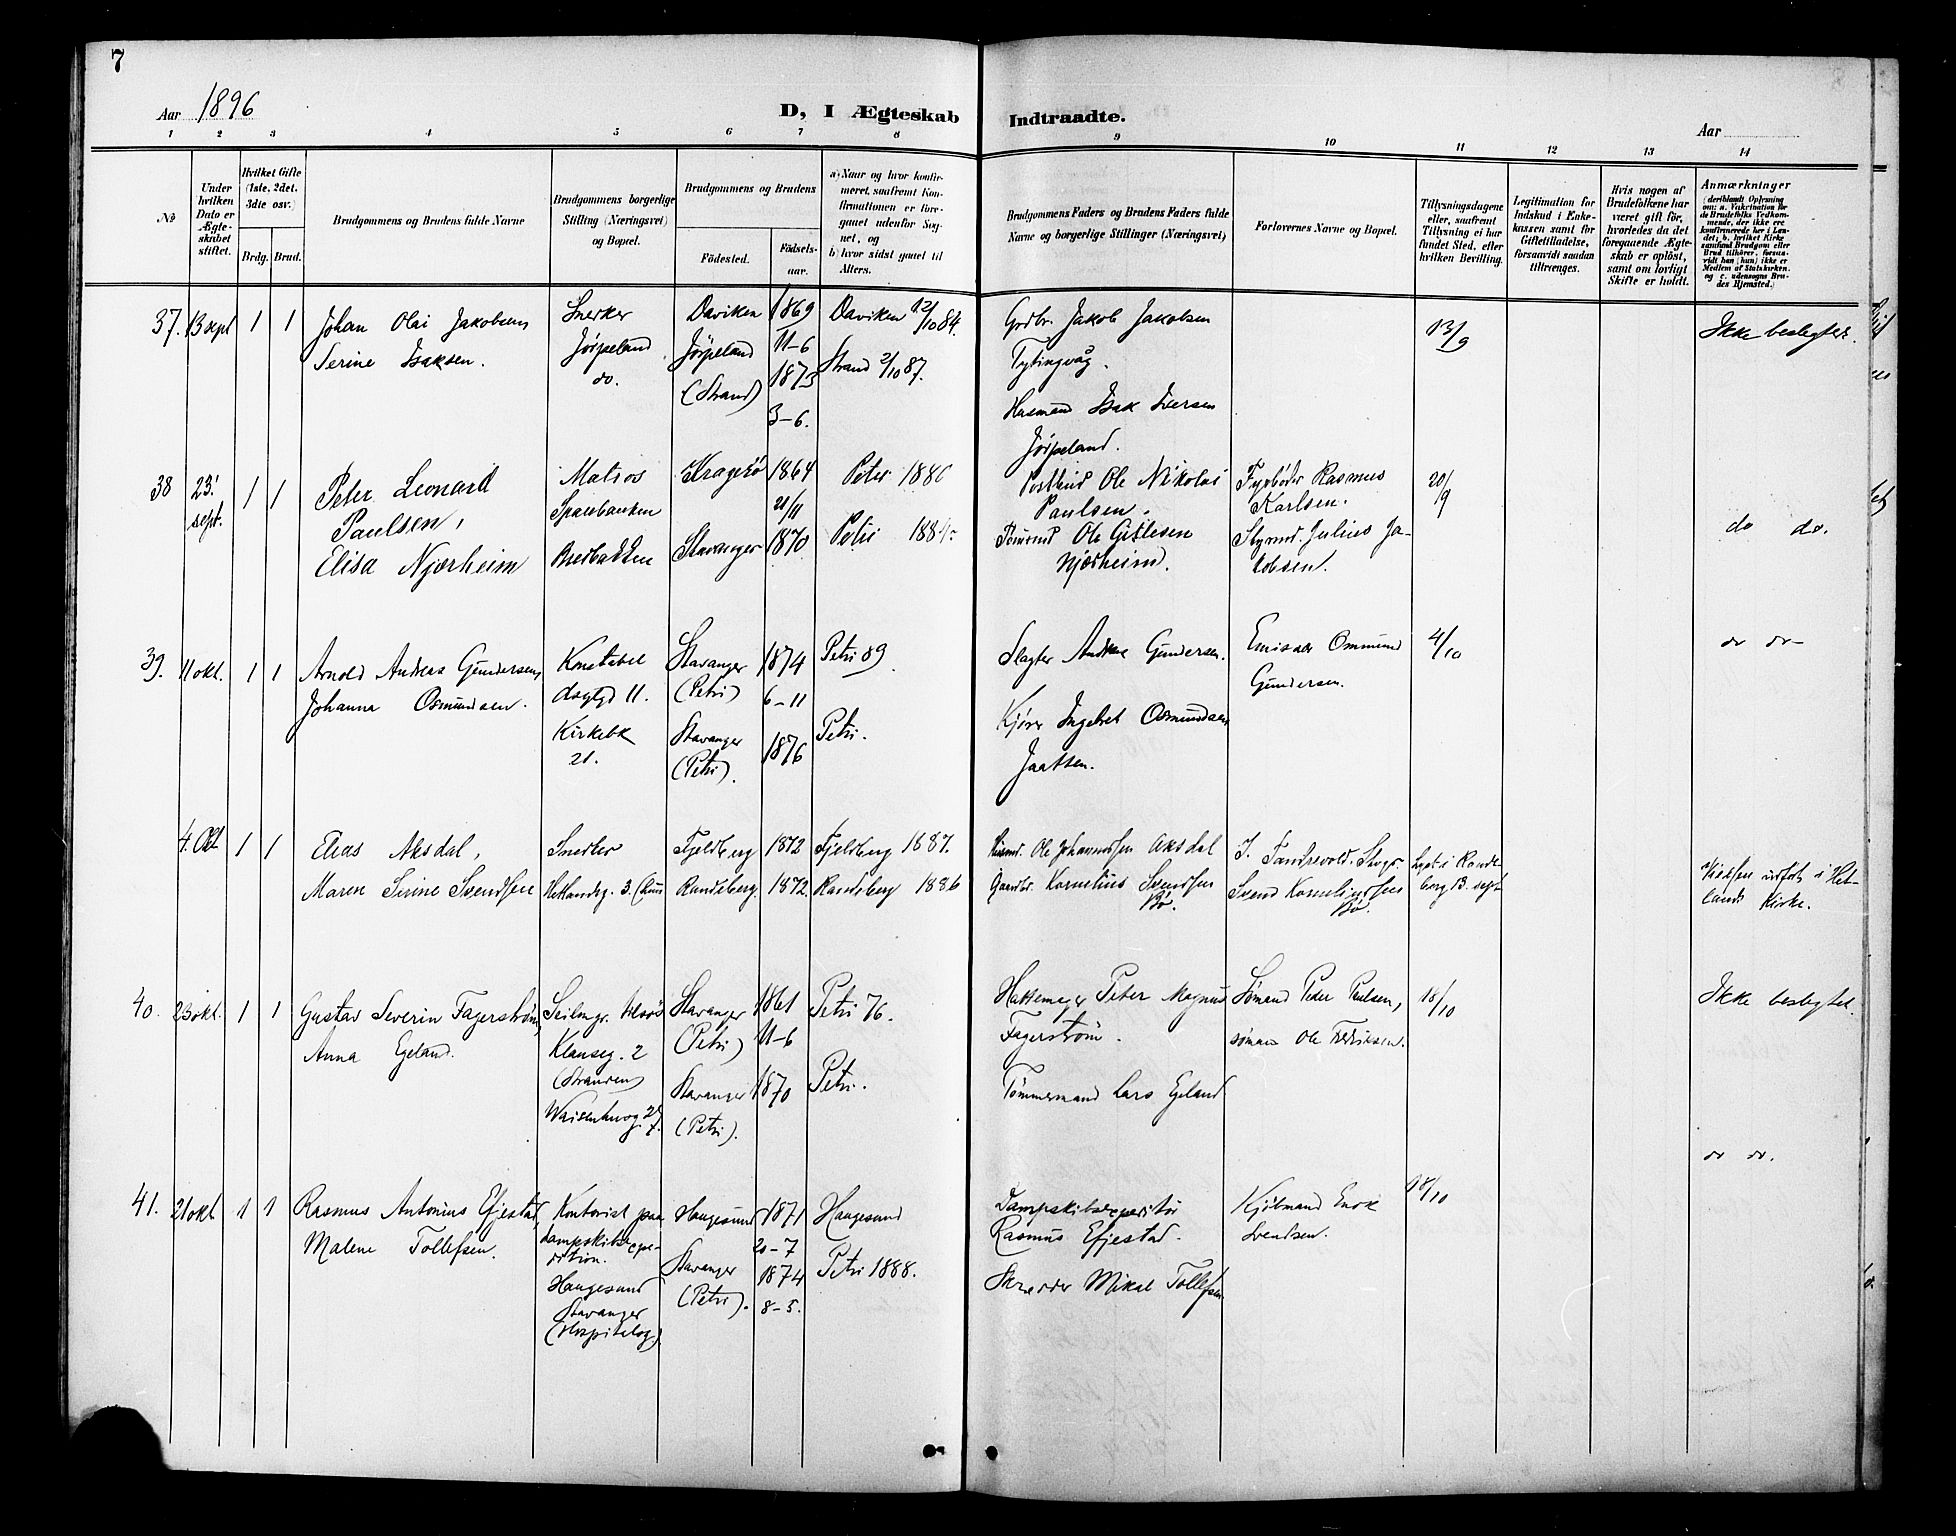 7
Aar 1896
D, I Ægteskab Indtraadte.
Aar
1 2 3 4 5 6 7 8 9 10 11 12 13 14
No
Under hvilken Dato er Ægteskabet stiftet.
Hvilket Gifte (1ste, 2det, 3die osv.)
Brdg. Brud.
Brudgommens og Brudens fulde Navne
Brudgommens borgerlige Stilling (Næringsvei) og Bopæl.
Brudgommens og Brudens
Födested.
Födselsaar.
a) Naar og hvor konfirmeret, saafremt Konfirmationen er foregaaet udenfor Sognet, og
b) hvor sidst gaaet til Alters.
Brudgommens Faders og Brudens Faders fulde Navne og borgerlige Stillinger (Næringsvei)
Forlovernes Navne og Bopæl.
Tillysningsdagene eller, saafremt Tillysning ei har fundet Sted, efter hvilken Bevilling.
Legitimation for Indskud i Enkekassen samt for Giftetilladelse, forsaavidt saadan tiltrænges.
Hvis nogen af Brudefolkene har været gift för, hvorledes da det foregaaende Ægteskab er oplöst, samt om lovligt Skifte er holdt.
Anmærkninger
37. 13 sept 1 1
Johan Olai Jakobsen,
Serine Isaksen.
Snerker
Jørpeland
do.
Daviken
Jørpeland
(Strand)
1869
11-6
1873
3-6.
Daviken 12/10 84.
Strand 2/10 87.
Grdbr. Jakob Jakobsen
Tytingvåg.
Husmand Isak Iversen
Jørpeland.
13/9
Ikke beslegtet.
38 23' sept. 1 1
Peter Leonard
Paulsen,
Elisa Njærheim
Matros
Sparebanken
Bredbakken
Kragerø
Stavanger
1864
21/11
1870
Petri 1880
Petri 188
Postbud Ole Nikolai
Paulsen.
Ole Gitlesen
Njærheim.
Fyrbøder Rasmus
Karlsen.
Styrmd. Julius Jakobsen.
20/9
do do.
39. 11 okt. 1 1
Arnold Andreas Gundersen,
Johanna Osmundsen.
Konstabel
11.
Kirkebk
21.
Stavanger
(Petri)
Stavanger
(Petri).
1874
6-11
1876
Petri 89
Petri.
Slagter Andreas Gundersen.
Kjører Ingebret Osmundsen
Jaatten.
Emissær Ommund
Gundersen.
4/10
do do
4. Okt 1 1
Elias Aksdal,
Maren Sirine Svendsen
Snedker
Hetlandsg. 3.
Fjeldberg
Randeberg.
1872
1872.
Fjeldberg 1887.
Randeberg 1886
Ole Johannessen Aksdal
Gaardbr. Kornelius Svendsen
Bø.
Svend Korneliussen
Bø.
Lyst i Randeberg 13. sept
Vielsen udført i Hetlands Kirke.
40. 23 okt. 1 1
Gustav Severin Fagerstrøm,
Anna Egeland.
Seilmgr. tilsøs
Klausg. 2
(Stranden)
Waisenhusg. 27.
Stavanger
(Petri)
Stavanger
(Petri).
1861
11-6
1870
Petri 76.
Petri.
Hattemager Peter Magnus
Fagerstrøm.
Tømmermand Lars Egeland
Sømand Peder Paulsen,
sømand Ole Fredriksen.
18/10
Ikke beslegtet.
41. 21 okt 1 1
Rasmus Antonius Efjestad,
Malene Tollefsen.
Kontorist paa
dampskibsexpedition.
Haugesund
Stavanger
(Hospitalsg.)
Haugesund
Stavanger
(Petri).
1871
20-7
1874
8-5.
Haugesund
Petri 1888.
Dampskibsexpeditør
Rasmus Efjestad.
Skrædder Mikal Tollefsen
Kjøbmand Enok
Svendsen.
18/10
do do.